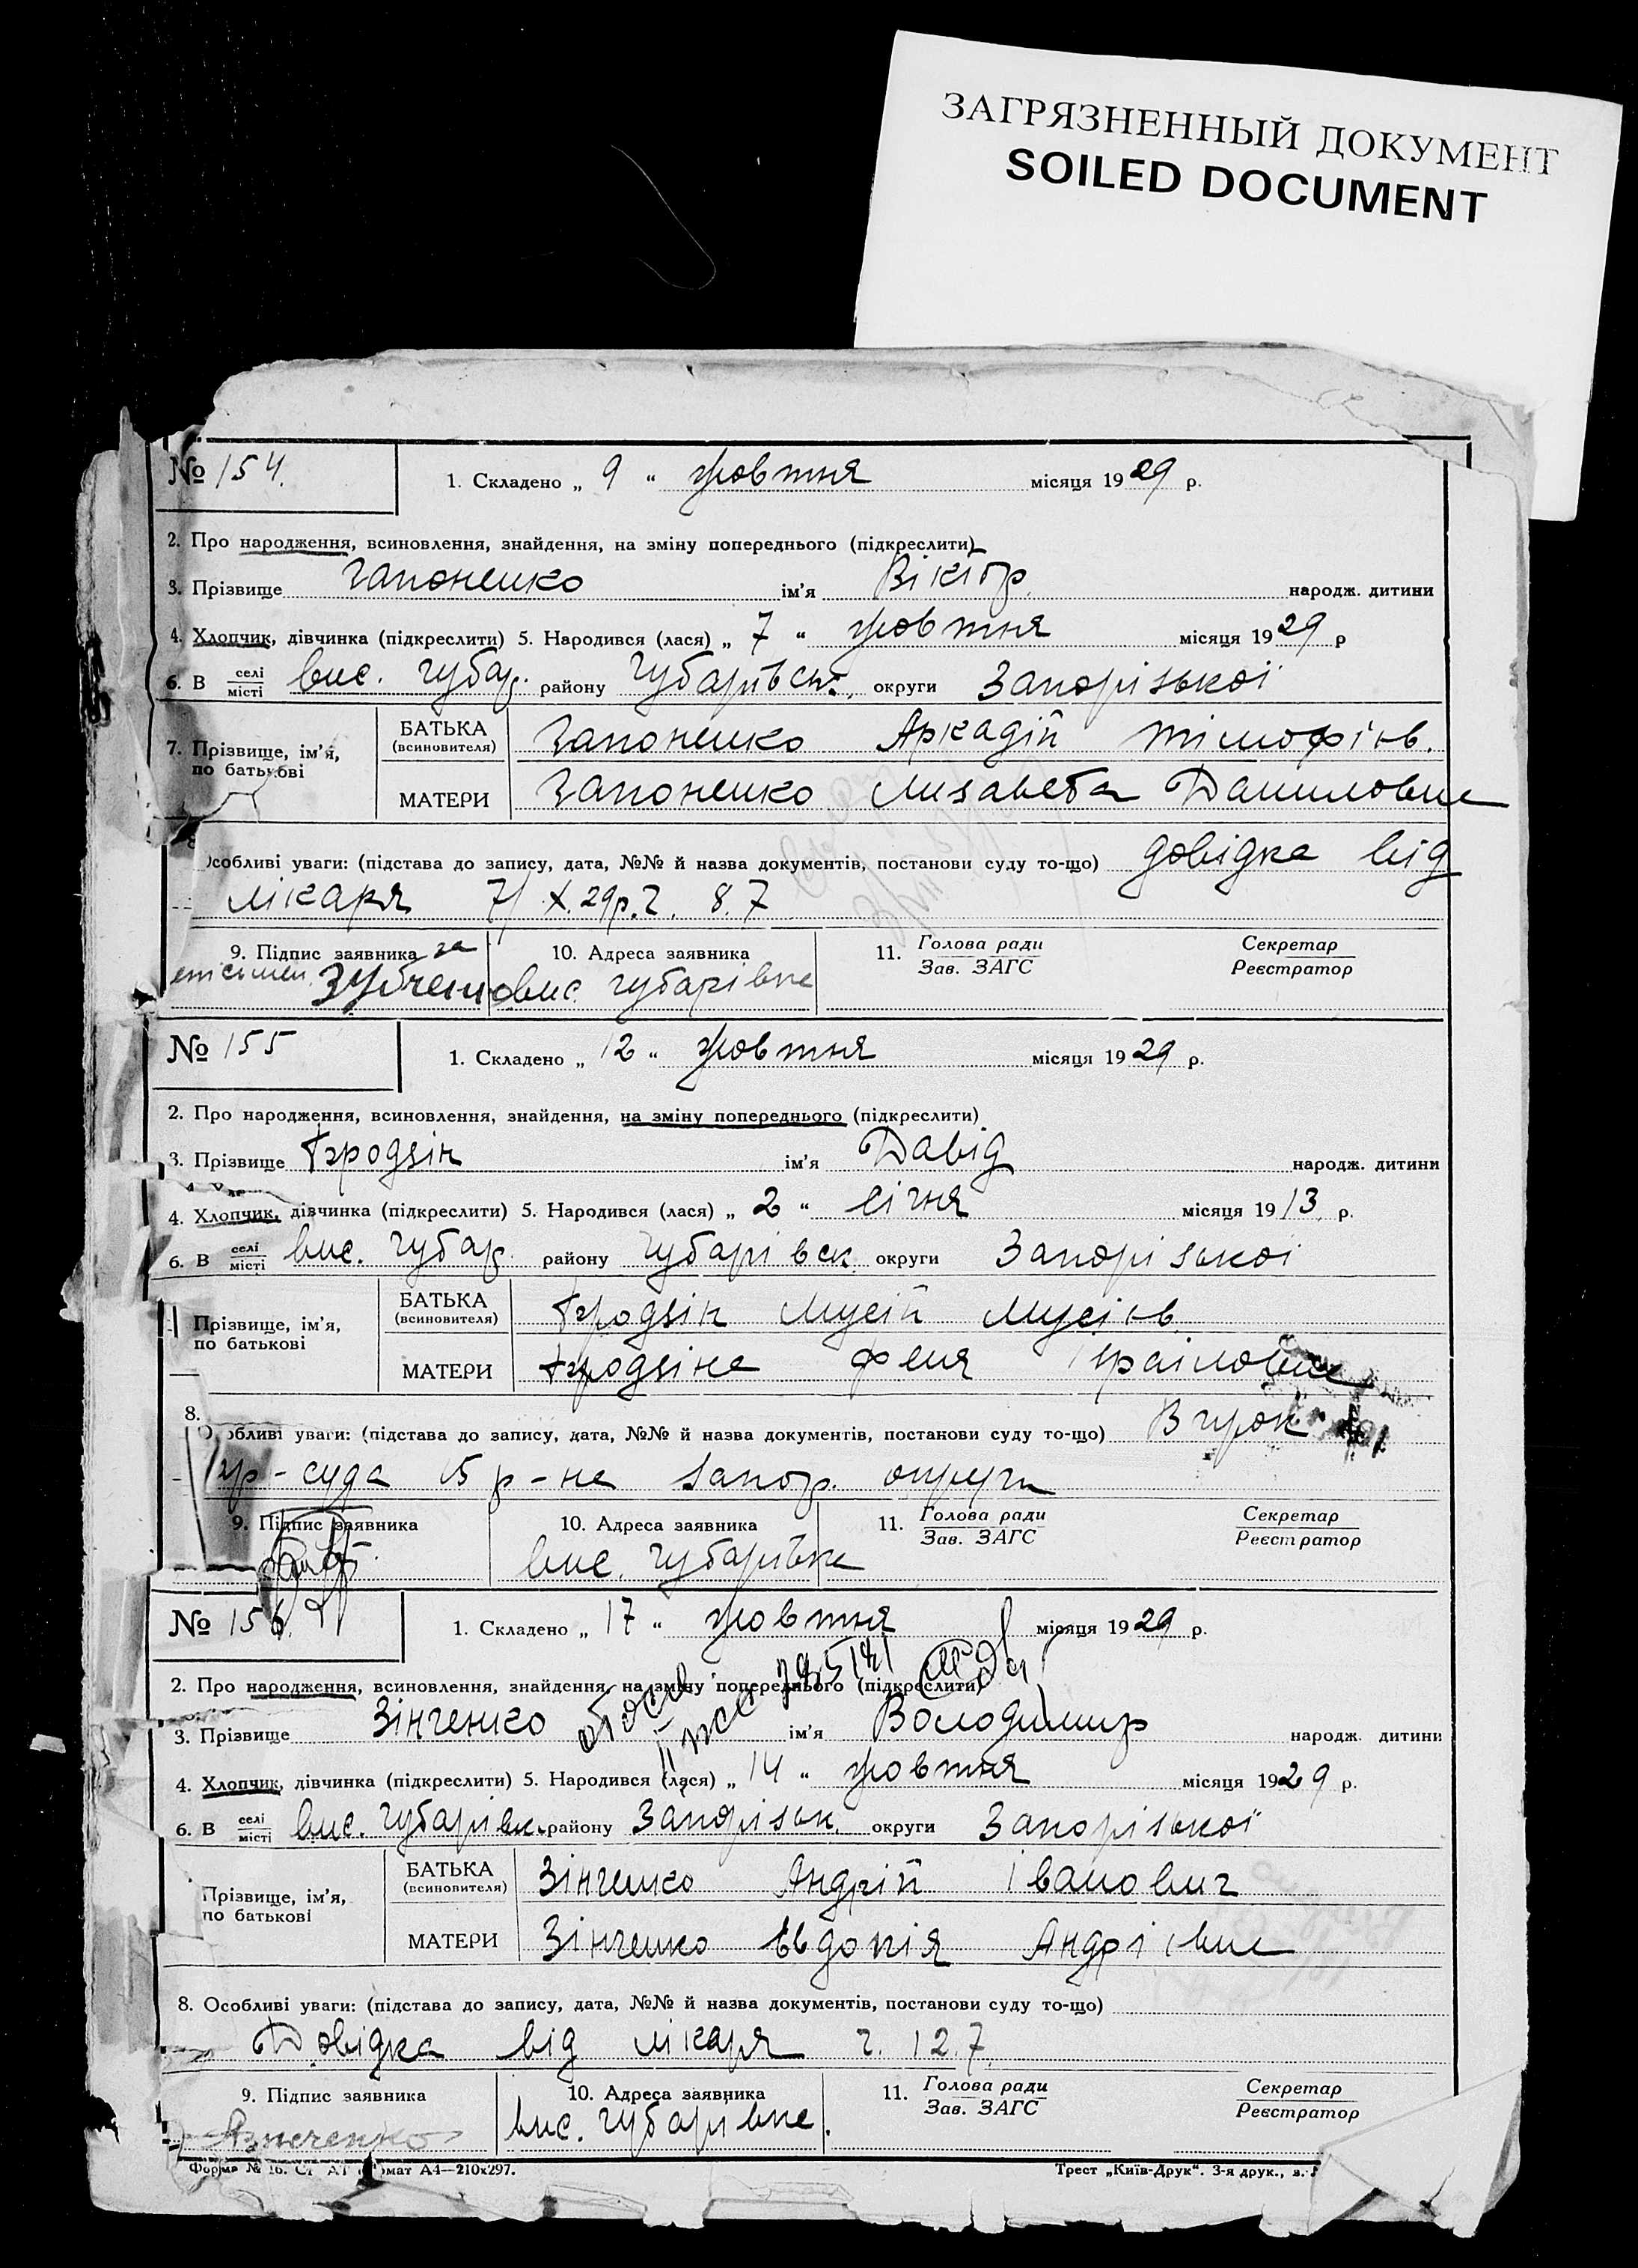 ЗАГРЯЗНЕННЫЙ ДОКУМЕНТ
SOILED DOCUMENT
№ 154.
1. Складено „ 9 “ жовтня місяця 1929 р.
2. Про народження, всиновлення, знайдення, на зміну попереднього (підкреслити)
3. Прізвище Гапоненко ім'я Віктор народж. дитини
4. Хлопчик, дівчинка (підкреслити) 5. Народився (лася) „ 7 “ жовтня місяця 1929 р
6. В селі місті вис. Губар. району Губарівськ. округи Запоріської
7. Прізвище, ім'я, по батькові
БАТЬКА (всиновителя) Гапоненко Аркадій Тімофіїв.
МАТЕРИ Гапоненко Лизавета Даниловна
Особливі уваги: (підстава до запису, дата, №№ й назва документів, постанови суду то-що) довідка від
лікаря 7/X.29р. ч. 87
9. Підпис заявника за
10. Адреса заявника
11. Голова ради Зав. ЗАГС
Секретар Реєстратор
вис. Губарівка
№ 155
1. Складено „ 12 “ жовтня місяця 1929 р.
2. Про народження, всиновлення, знайдення, на зміну попереднього (підкреслити)
3. Прізвище Гродзін ім'я Давід народж. дитини
4. Хлопчик, дівчинка (підкреслити) 5. Народився (лася) „ 2 “ січня місяця 1913 р.
6. В селі місті вис. Губар. району Губарівск. округи Запоріської
Прізвище, ім'я, по батькові
БАТЬКА (всиновителя) Гродзін Мусій Мусіїв
МАТЕРИ Гродзіна Феня
8. Особливі уваги: (підстава до запису, дата, №№ й назва документів, постанови суду то-що) Вирок
суда 15 р-на запор. округи
9. Підпис заявника
10. Адреса заявника
11. Голова ради Зав. ЗАГС
Секретар Реєстратор
вис. Губарівка
№ 156.
1. Складено „ 17 “ жовтня місяця 1929 р.
2. Про народження, всиновлення, знайдення, на зміну попереднього (підкреслити)
3. Прізвище Зінченко ім'я Володимир народж. дитини
4. Хлопчик, дівчинка (підкреслити) 5. Народився (лася) „ 14 “ жовтня місяця 1929 р.
6. В селі місті вис. Губарівк. району Запоріськ. округи Запоріської
Прізвище, ім'я, по батькові
БАТЬКА (всиновителя) Зінченко Андрій Іванович
МАТЕРИ Зінченко Євдокія Андріївна
8. Особливі уваги: (підстава до запису, дата, №№ й назва документів, постанови суду то-що)
Довідка від лікаря ч. 127.
9. Підпис заявника
10. Адреса заявника
11. Голова ради Зав. ЗАГС
Секретар Реєстратор
вис. Губарівка.
Форма № 16. Формат А4—210х297.
Трест „Київ-Друк“. 3-я друк.,